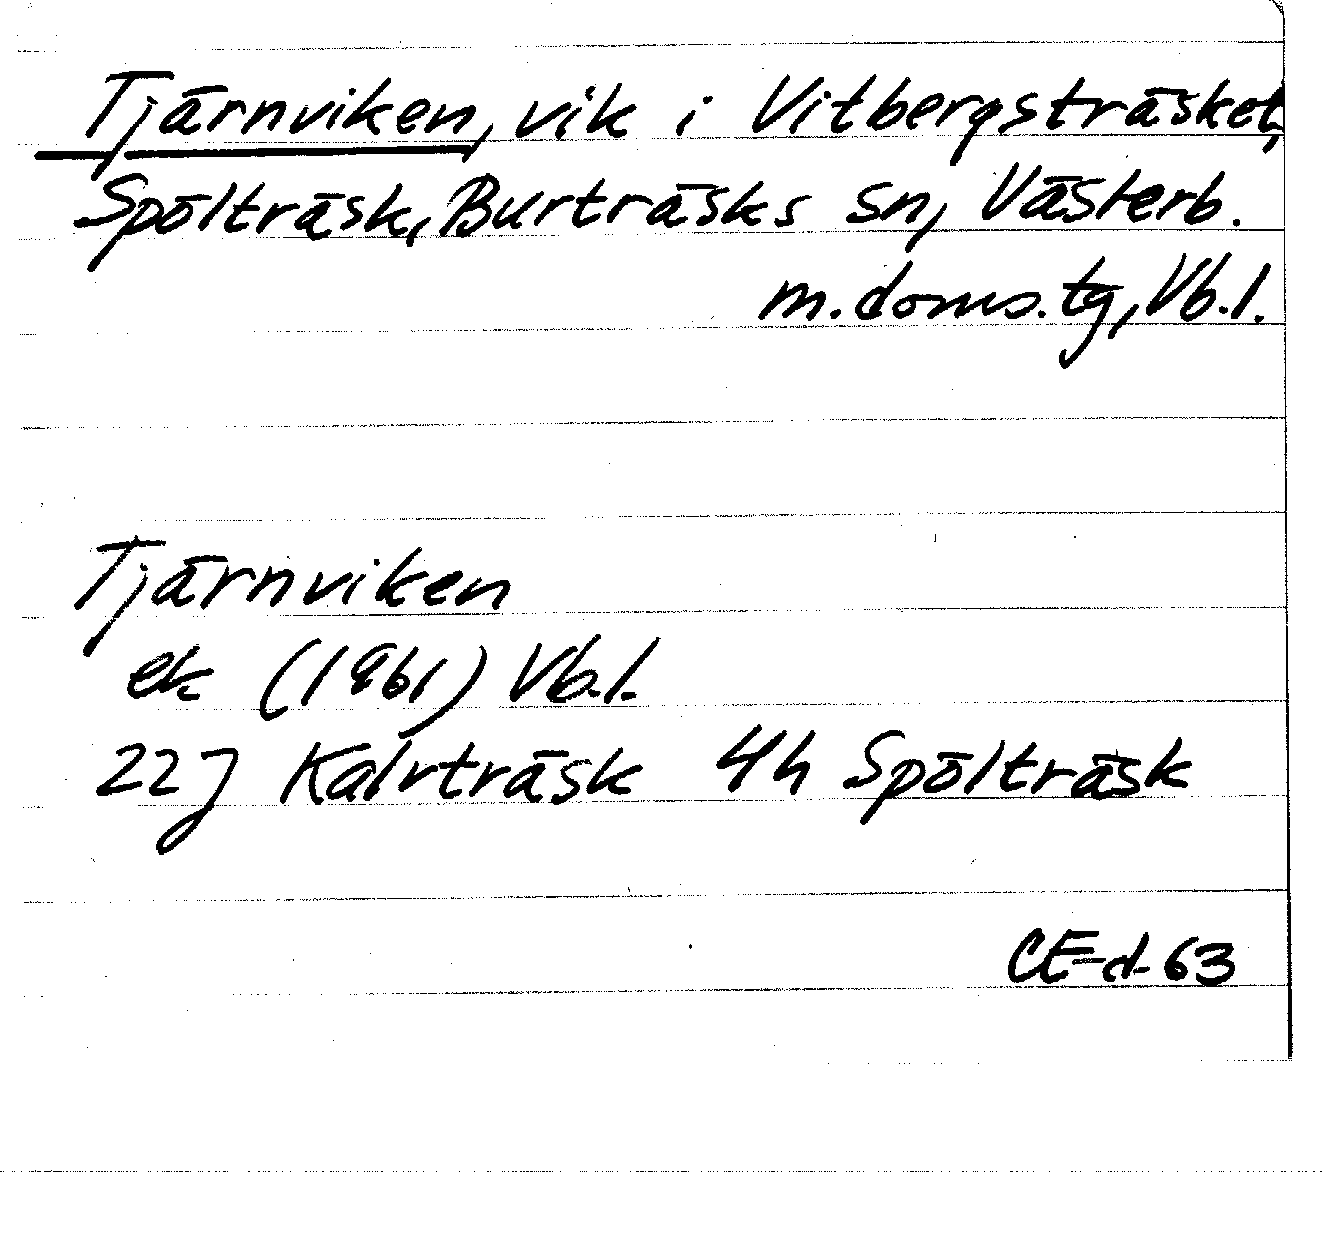 Tjärnviken, vik i Vitbergsträsket,
Spölträsk, Burträsks sn, Västerb.
m. doms. tg, Vb. l.
Tjärnviken
ek (1961) Vb. l.
22J Kalvträsk 4h Spölträsk
CE-d- 63